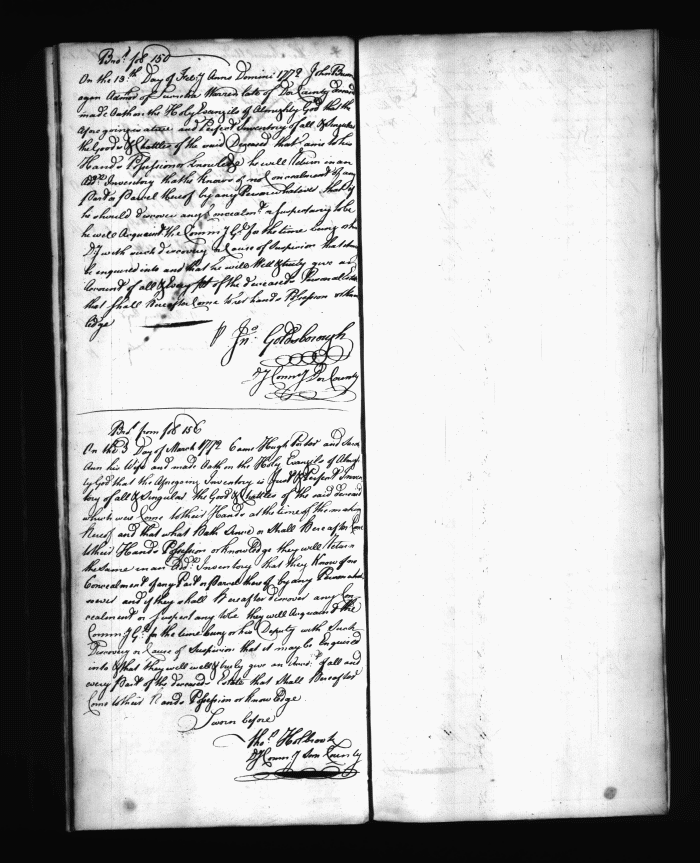 Brot fol 150
On the 13th Day of Feby Anno Domini 1772 John
made Oath on the Holy Evangils of Almighty God that the
aforegoing is a true and Perfect Inventory of all & Singular
the Goods & Chattles of the said Deceased that came to his
Hands Possession or knowledge he will Return in an
Addl Inventory that he Knows of no Concealment of any
Part or Parcel thereof by any Person whatever that if
he should discover any Concealmt or suspect any to be
he will Acquaint the Commy Gl for the time being or his
Dy with such Discovery or Cause of Suspicion that it may
be enquired into and that he will Well & truly give an
Account of all & Every Part of the deceased's Personal Estate
that shall Hereafter Come to his hands Possession or Know
ledge
p Jno Goldsborough
Dy Commy Dor County
Brot from fol 156
On the 3 Day of March 1772 Came Hugh Porter and
Ann his Wife and made Oath on the Holy Evangils of Almigh
ty God that the Aforegoing Inventory is Just & Perfect Inven
tory of all & Singular the Goods & Chattles of the said deceased
which were Come to their Hands at the time of the making
hereof and that what Hath Since or Shall Hereafter Come
to their Hands Possession or knowledge they will Return
the Same in an Addl Inventory that they Know of no
Concealment of any Part or Parcel thereof by any Person what
soever and if they shall Hereafter discover any Con
cealment or Suspect any to be they will Acquaint the
Commy Gl for the time being or his Deputy with Such
Discovery or Cause of Suspicion that it may be Enquired
into & that they will well & truly give an Acct of all and
every Part of the deceaseds Estate that Shall Hereafter
Come to their Hands Possession or knowledge
Sworn before
Thos Holbrook
Dy Commy Som County